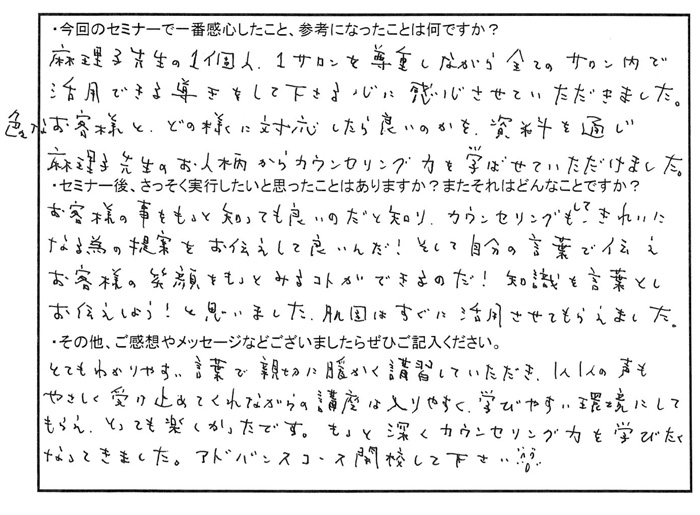 ・今回のセミナーで一番感心したこと、参考になったことは何ですか？
麻理子先生の1個人、1サロンを尊重しながら全てのサロン内で
活用できる導きをして下さる心に感心させていただきました。
色々なお客様と、どの様に対応したら良いのかを、資料を通じ
麻理子先生のお人柄からカウンセリング力を学ばせていただけました。
・セミナー後、さっそく実行したいと思ったことはありますか？またそれはどんなことですか？
お客様の事をもっと知っても良いのだと知り、カウンセリングもして、きれいに
なる為の提案をお伝えして良いんだ！そして自分の言葉で伝え
お客様の笑顔をもっとみるコトができるのだ！知識を言葉とし
お伝えしよう！と思いました。肌図はすぐに活用させてもらえました。
・その他、ご感想やメッセージなどございましたらぜひご記入ください。
とてもわかりやすい言葉で親切に暖かく講習していただき、1人1人の声も
やさしく受け止めてくれながらの講座は入りやすく、学びやすい環境にして
もらえ、とっても楽しかったです。もっと深くカウンセリング力を学びたく
なってきました。アドバンスコース開校して下さい